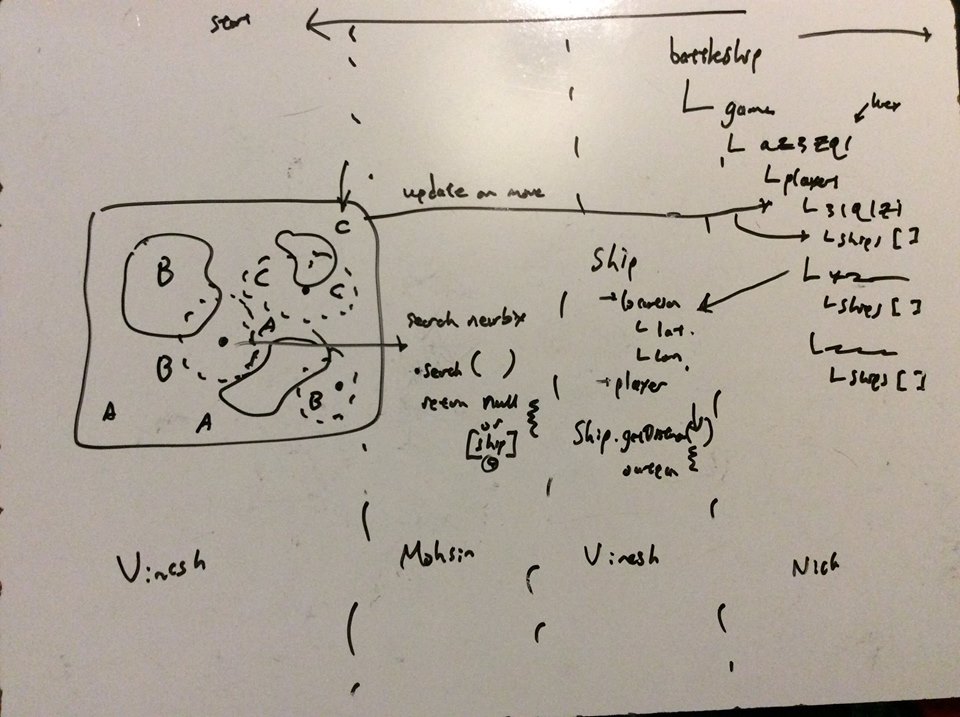 start
battleship
L game
L a23zq1
user
L players
L 31q1z1
L ships []
L
L ships []
L
L ships []
update on move
C
B
C
C
A
B
B
A
A
search nearby
• search ( )
return null
or
[ship]
Ship
→ location
L lat.
L lon.
→ player
Ship.get
Vinesh
Mohsin
Vinesh
Nick